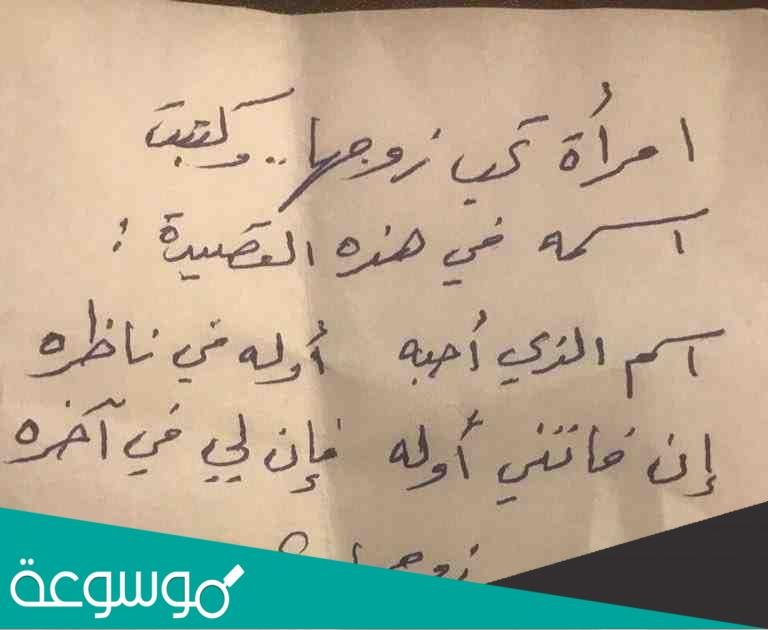 امرأة تحب زوجها .. وكتبت
اسمه في هذه القصيدة :
اسم الذي أحبه أوله في ناظره
إن فاتني أوله فإن لي في آخره
موسوعة